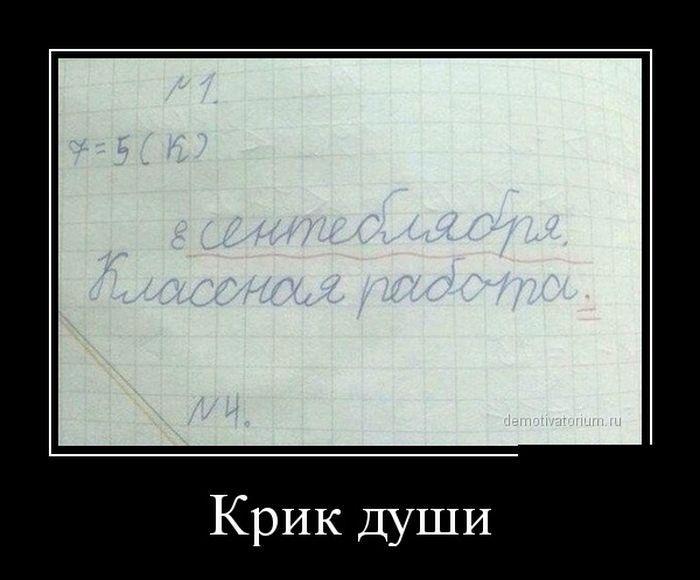 №1.
7=5(К)
8 сентеблября.
Классная работа.
№4.
demotivatorium.ru
Крик души